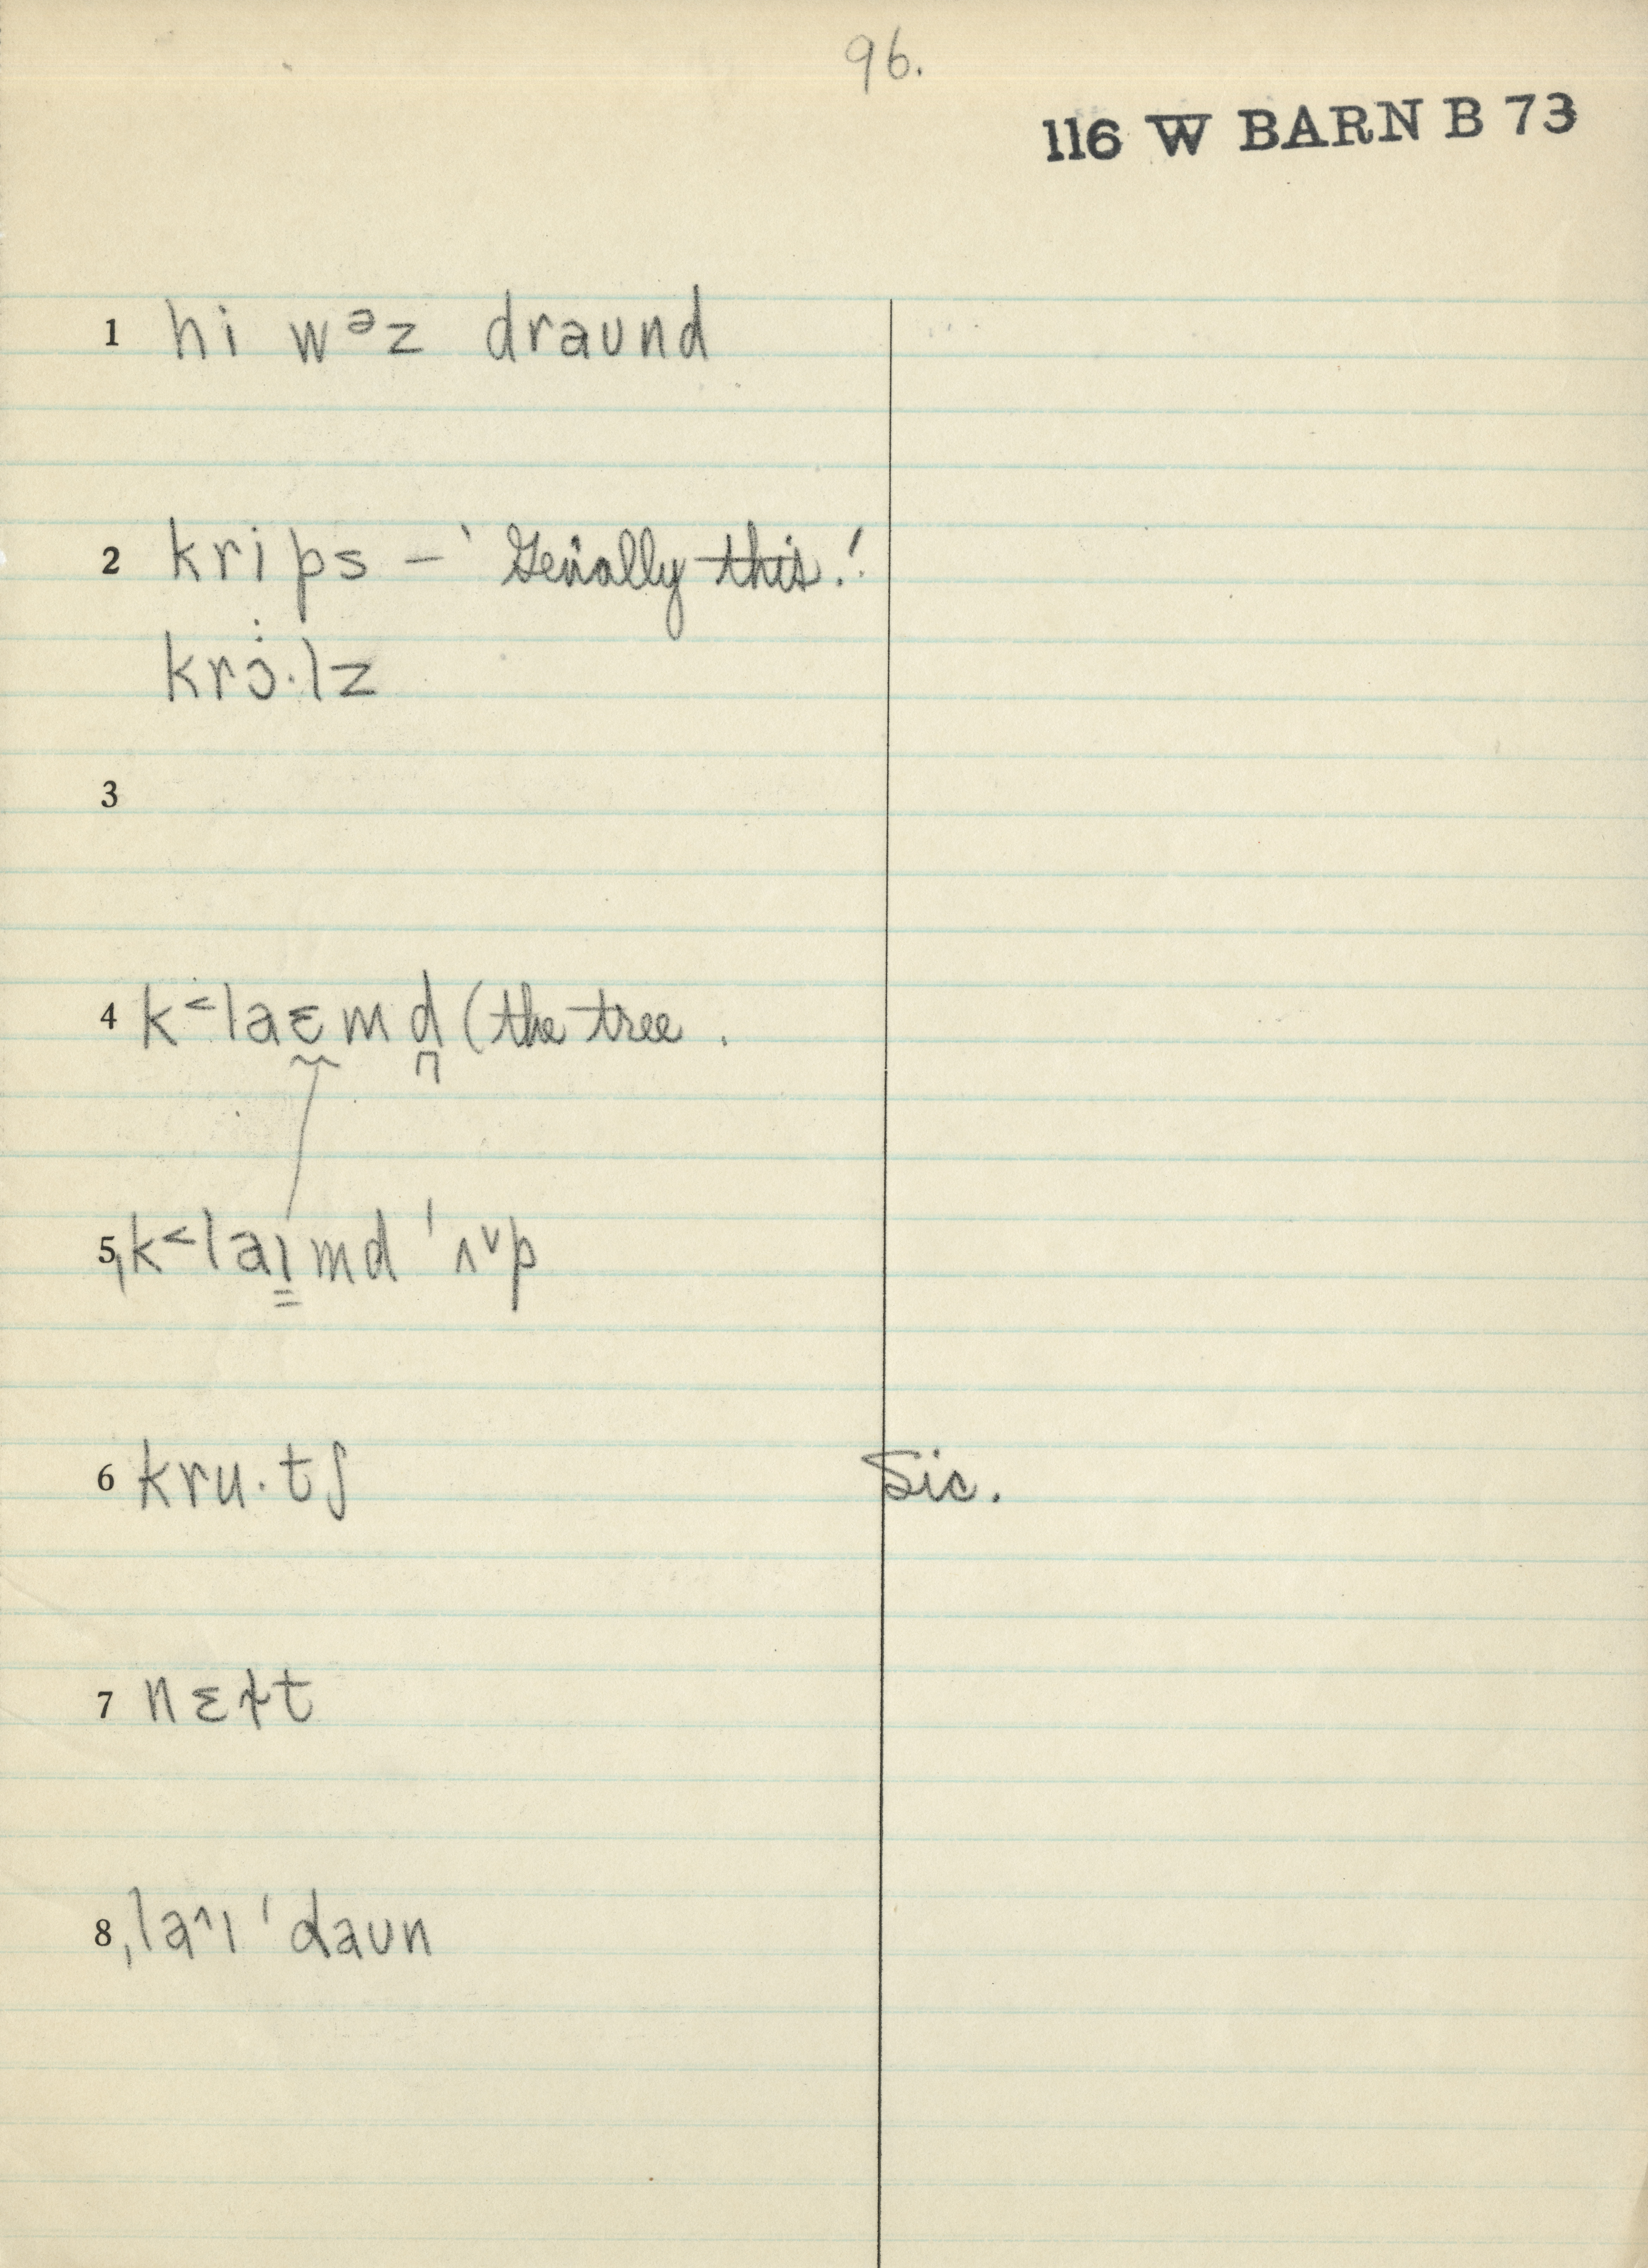 96.
116 W BARN B 73
1 hi wᵊz draund
2 krips – ‘Gen'ally this.’
krɔ·lz
3
4 k˂laɛmd (the tree .
5 ˌk˂laɪmd ˈʌ˅p
6 kru·tʃ Sic.
7 nɛɫt
8 ˌla˄ɪ ˈdaʊn